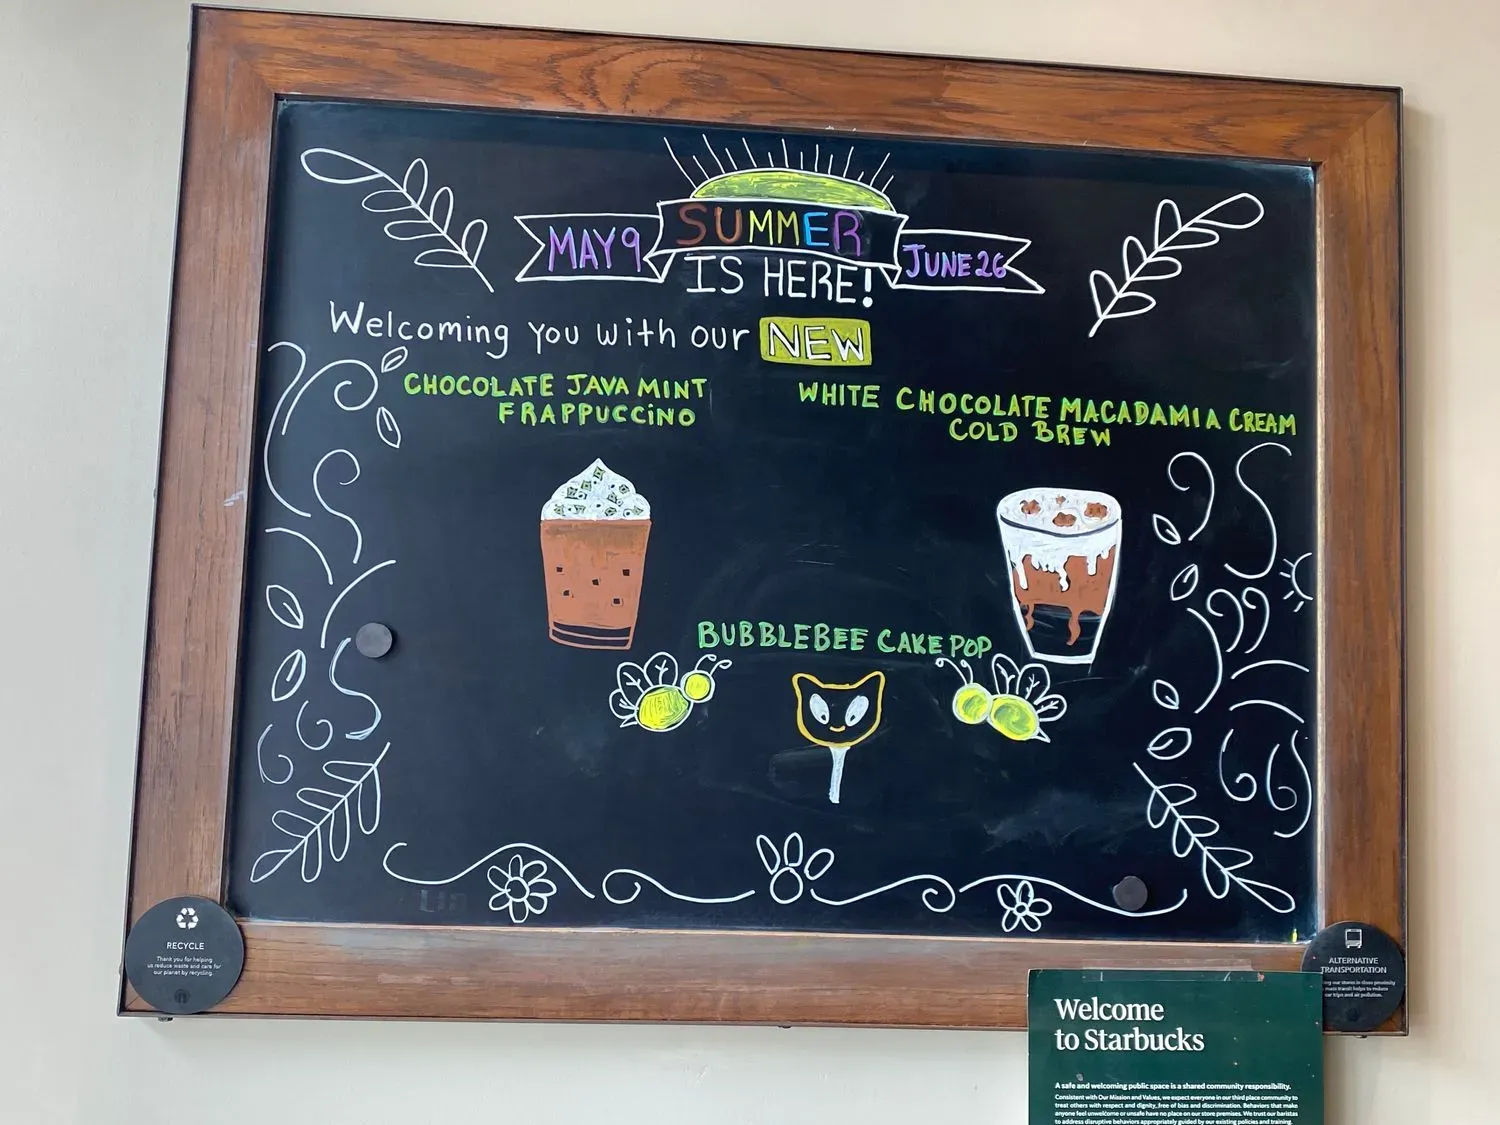 MAY 9
SUMMER
JUNE 26
IS HERE!
Welcoming you with our NEW
CHOCOLATE JAVA MINT
FRAPPUCCiNO
WHITE CHOCOLATE MACADAMIA CREAM
COLD BREW
BUBBLEBEE CAKE POP
RECYCLE
Thank you for helping
us reduce waste and care for
our planet by recycling.
ALTERNATIVE
TRANSPORTATION
our stores in close proximity
transit helps to reduce
car trips and air pollution.
Welcome
to Starbucks
A safe and welcoming public space is a shared community responsibility.
Consistent with Our Mission and Values, we expect everyone in our third place community to
treat others with respect and dignity, free of bias and discrimination. Behaviors that make
anyone feel unwelcome or unsafe have no place on our store premises. We trust our baristas
to address disruptive behaviors appropriately guided by our existing policies and training.